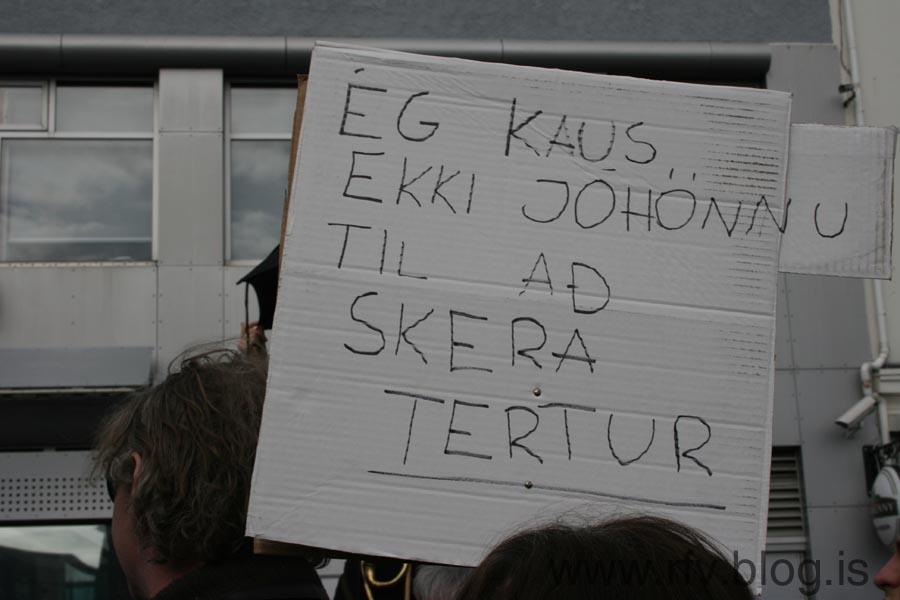 ÉG KAUS
EKKI JÓHÖNNU
TIL AÐ
SKERA
TERTUR
www.rfv.blog.is